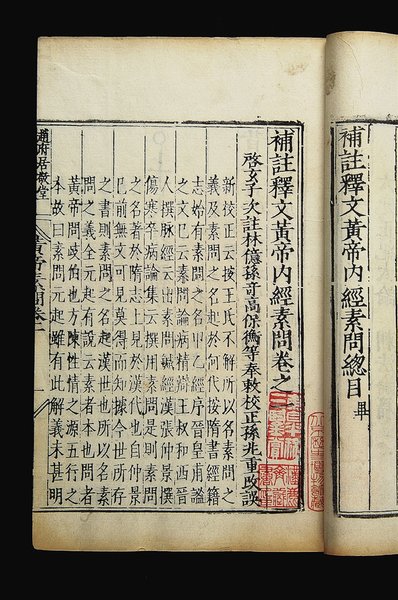 補註釋文黃帝內經素問總目 畢
補註釋文黃帝內經素問卷之一
啓玄子次註林億孫奇高保衡等奉敕校正孫兆重改誤
新校正云按王氏不解所以名素問之
義及素問之名起於何代按隋書經籍
志始有素問之名甲乙經序晉皇甫謐
之文已云素問論病精辯王叔和西晉
人撰脉經云出素問鍼經漢張仲景撰
傷寒卒病論集云撰用素問是則素問
之名著於隋志上見於漢代也自仲景
已前無文可見莫得而知據今世所存
之書則素問之名起漢世也所以名素
問之義全元起有說云素者本也問者
黃帝問歧伯也方陳性情之源五行之
本故曰素問元起雖有此解義未甚明
黃帝素問卷一
趙府居敬堂